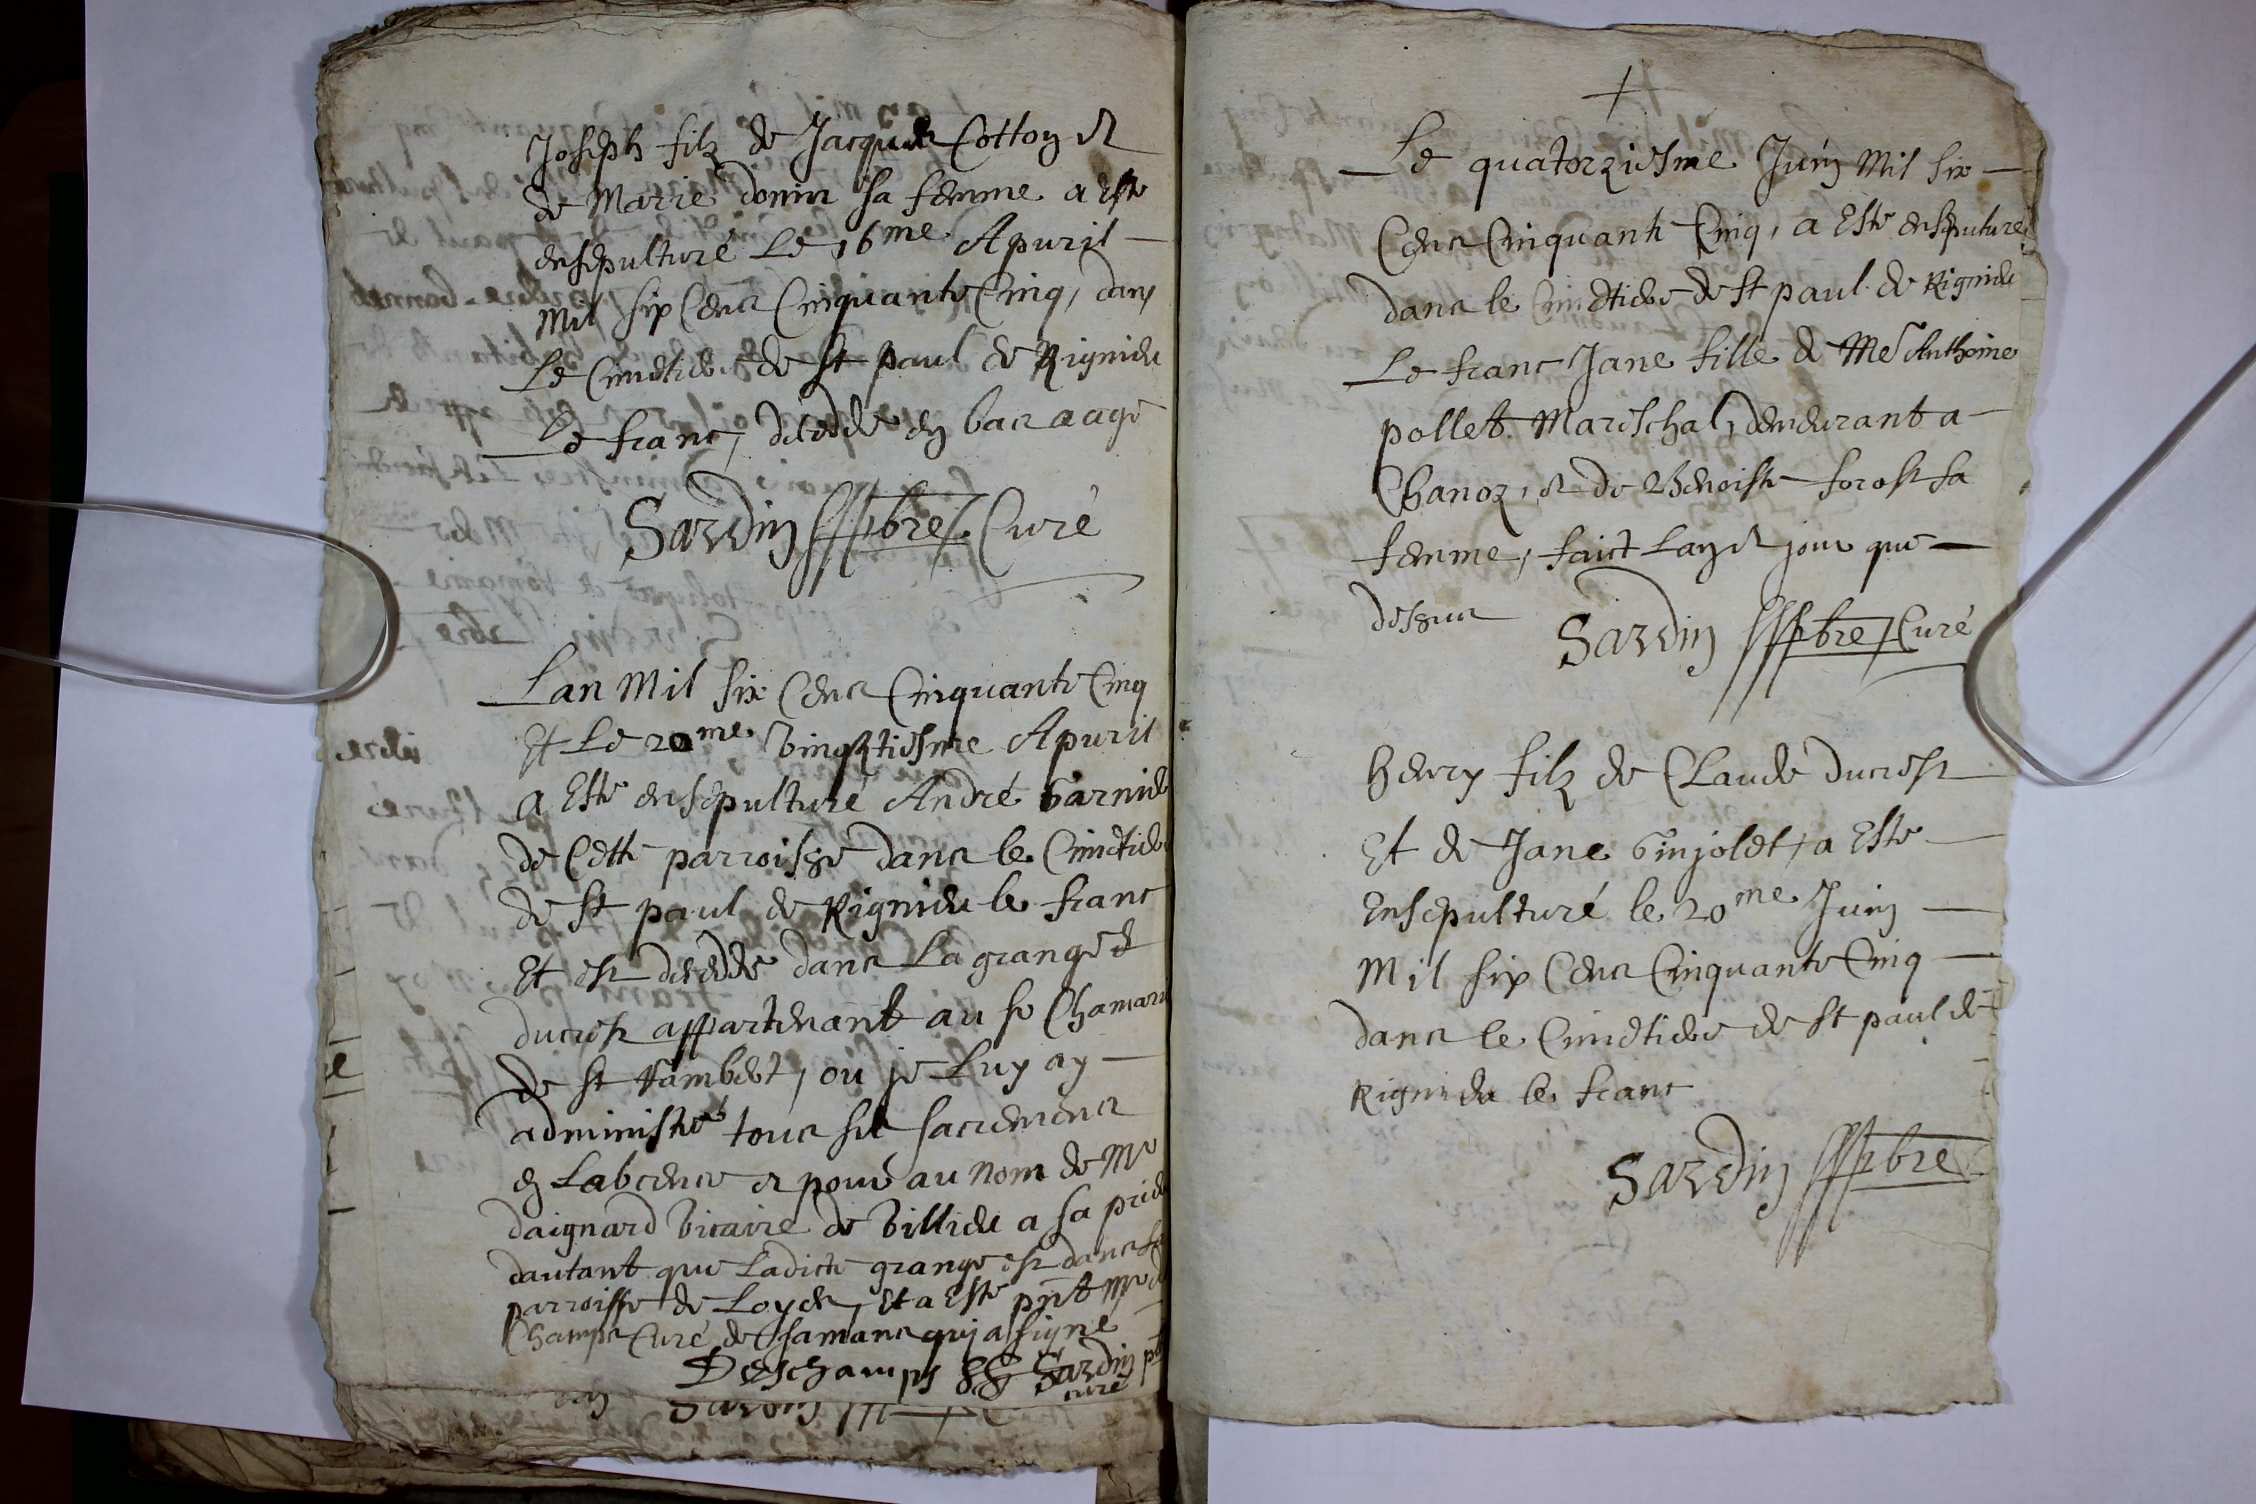 Joseph filz de Jacques Cotton et
de Marie donin sa femme a este
ensepulturé Le 16me Apuril
Mil six Cens Cinquante Cinq, dans
Le Cimetiere de st paul de Rignieu
Le franc, decedde en bas aage
Sardin pbre Curé
Lan Mil six Cens Cinquante Cinq
Et Le 20me vingtiesme Apuril
a Este ensepulturé André Garnier
de Cette parroisse dans le Cimetiere
de st paul de Rignieu le franc
Et est decedde dans La grange
ducrest appartenant au sr
de st Rambert, ou je Luy ay
administré tous ses sacremens
en Labcence et pour au nom de Mre
daignard vicaire de villieu a sa priere
dautant que Ladicte grange est dans sa
parroisse de Loyes, Et a Este pnt Mre
Champs Curé de Samans qui a signé
Deschamps Sardin pbre
curé
Le quatorziesme Juin Mil six
Cens Cinquante Cinq, a Este ensepulturé
dans le Cimetiere de st paul de Rignieu
Le franc Jane fille de Me Anthoine
pollet Mareschal, demeurant a
Chanoz, et de Benoiste forost sa
femme, faict Lan et jour que
dessus Sardin pbre Curé
henry filz de Claude ducrest
Et de Jane Ginjolet, a Este
Ensepulturé le 20me Juin
Mil six Cens Cinquante Cinq
dans le Cimetiere de st paul de
Rignieu le franc
Sardin pbre